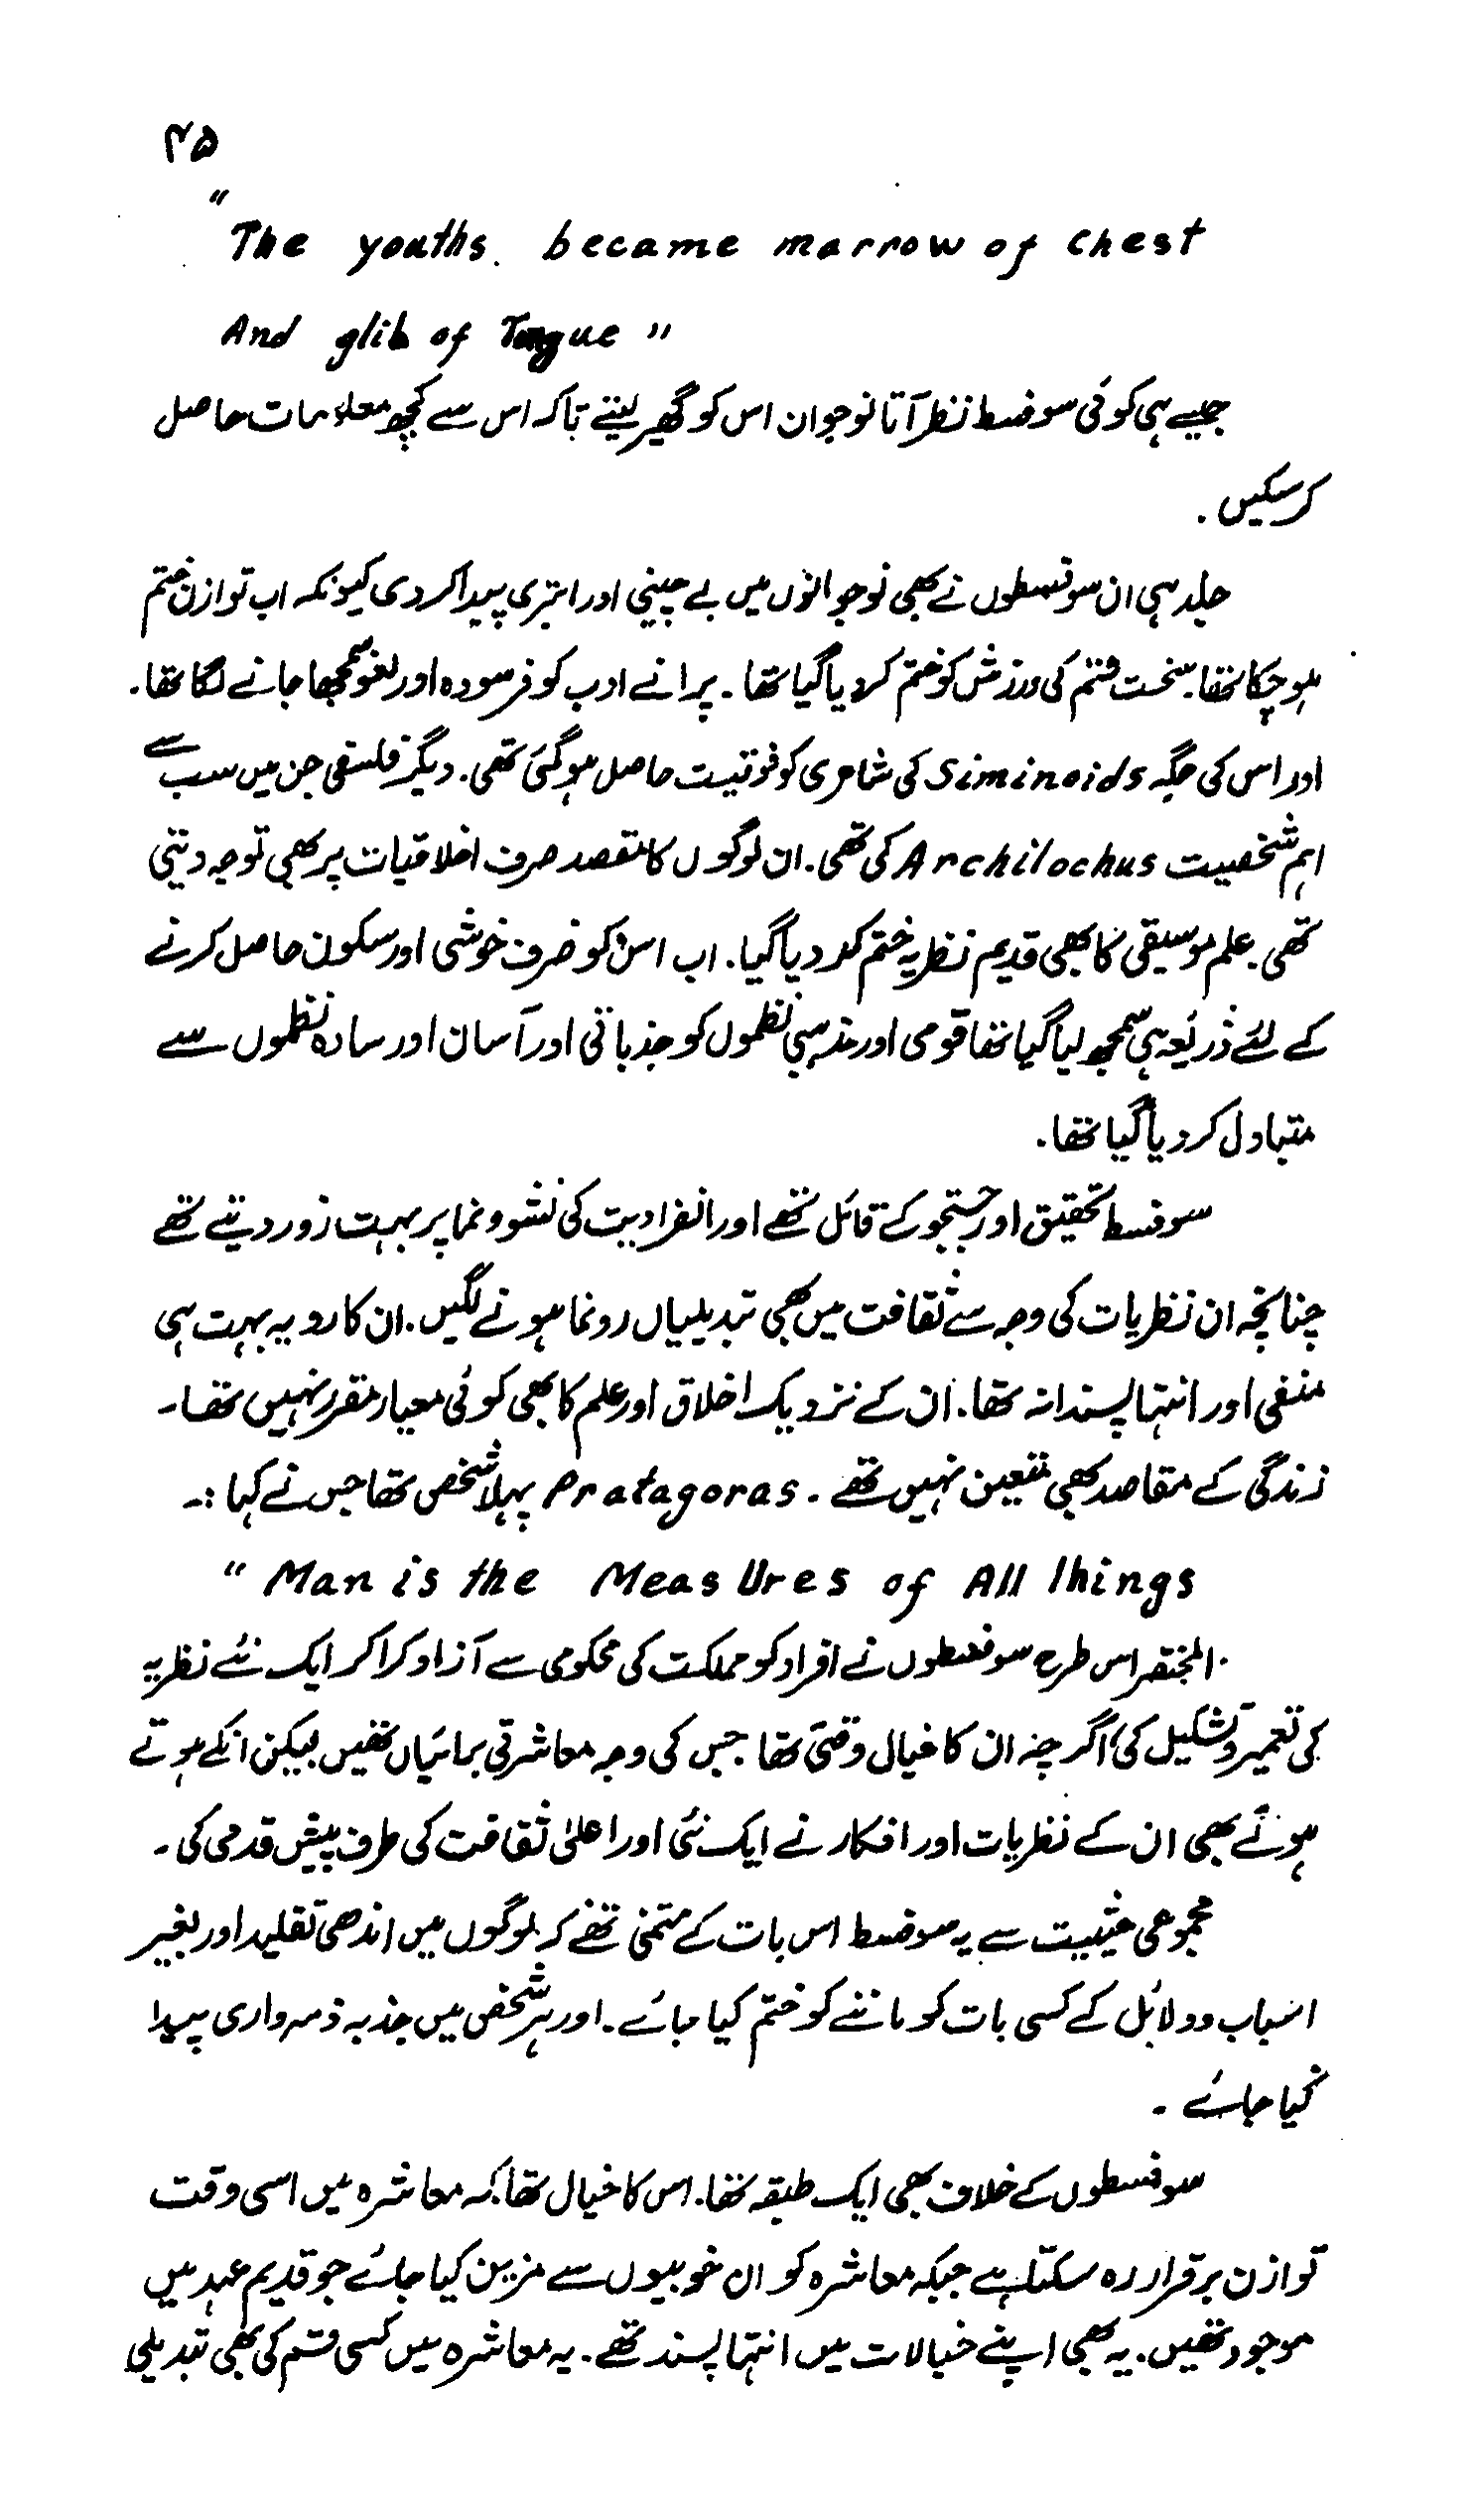 ۴۵
"The youths. became marrow of chest
And glib of Tongue"
جیسے ہی کوئی سوفسط نظر آتا نوجوان اس کو گھیر لیتے تاکہ اس سے کچھ معلومات حاصل
کرسکیں.
جلد ہی ان سوفسطوں نے بھی نوجوانوں میں بے چینی اور ابتری پیدا کردی کیونکہ اب توازن ختم
ہو چکا تھا. سخت قسم کی ورزش کو ختم کر دیا گیا تھا۔ پرانے ادب کو فرسودہ اور لغو سمجھا جانے لگا تھا.
اور اس کی جگہ Siminoids کی شاعری کو فوقیت حاصل ہو گئی تھی. دیگر فلسفی جن میں سب سے
اہم شخصیت Archilochus کی تھی. ان لوگوں کا مقصد صرف اخلاقیات پر بھی توجہ دیتی
تھی. علم موسیقی کا بھی قدیم نظریہ ختم کر دیا گیا. اب اس کو صرف خوشی اور سکون حاصل کرنے
کے لئے ذریعہ ہی سمجھ لیا گیا تھا قومی اور مذہبی نظموں کو جذباتی اور آسان اور سادہ نظموں سے
متبادل کر دیا گیا تھا.
سوفسط تحقیق اور جستجو کے قائل تھے اور انفرادیت کی نشوونما پر بہت زور دیتے تھے
چنانچہ ان نظریات کی وجہ سے ثقافت میں بھی تبدیلیاں رونما ہونے لگیں. ان کا رویہ بہت ہی
منفی اور انتہا پسندانہ تھا. ان کے نزدیک اخلاق اور علم کا بھی کوئی معیار مقرر نہیں تھا۔
زندگی کے مقاصد بھی متعین نہیں تھے۔ Pratagoras پہلا شخص تھا جس نے کہا :۔
"Man is the MeasUres of All Things
المختصر اس طرح سوفسطوں نے افراد کو مملکت کی محکومی سے آزاد کرا کر ایک نئے نظریہ
کی تعمیر و تشکیل کی اگرچہ ان کا خیال وقتی تھا جس کی وجہ معاشرتی برائیاں تھیں لیکن انکے ہوتے
ہوئے بھی ان کے نظریات اور افکار نے ایک نئی اور اعلیٰ ثقافت کی طرف پیش قدمی کی۔
مجموعی حیثیت سے یہ سوفسط اس بات کے متمنی تھے کہ لوگوں میں اندھی تقلید اور بغیر
اسباب و دلائل کے کسی بات کو ماننے کو ختم کیا جائے. اور ہر شخص میں جذبہ ذمہ واری پیدا
کیا جائے۔
سوفسطوں کے خلاف بھی ایک طبقہ تھا. اس کا خیال تھا کہ معاشرہ میں اسی وقت
توازن برقرار رہ سکتا ہے جبکہ معاشرہ کو ان خوبیوں سے مزین کیا جائے جو قدیم عہد میں
موجود تھیں. یہ بھی اپنے خیالات میں انتہا پسند تھے. یہ معاشرہ میں کسی قسم کی بھی تبدیلی